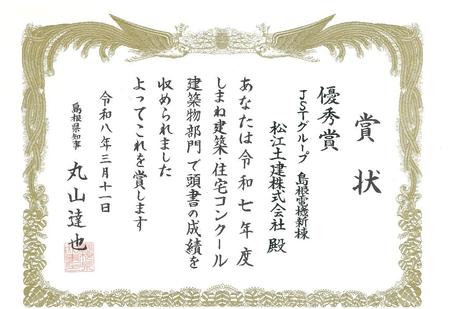 賞状
優秀賞
JSTグループ 島根電機新棟
松江土建株式会社 殿
あなたは令和七年度
しまね建築・住宅コンクール
建築物部門で頭書の成績を
収められました
よってこれを賞します
令和八年三月十一日
島根県知事 丸山達也